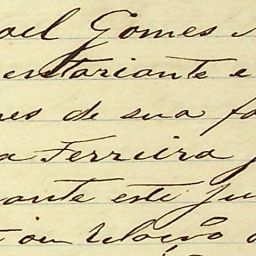 ael Gomes
entariante e
es de sua fa
a Ferreira
ante este Ju